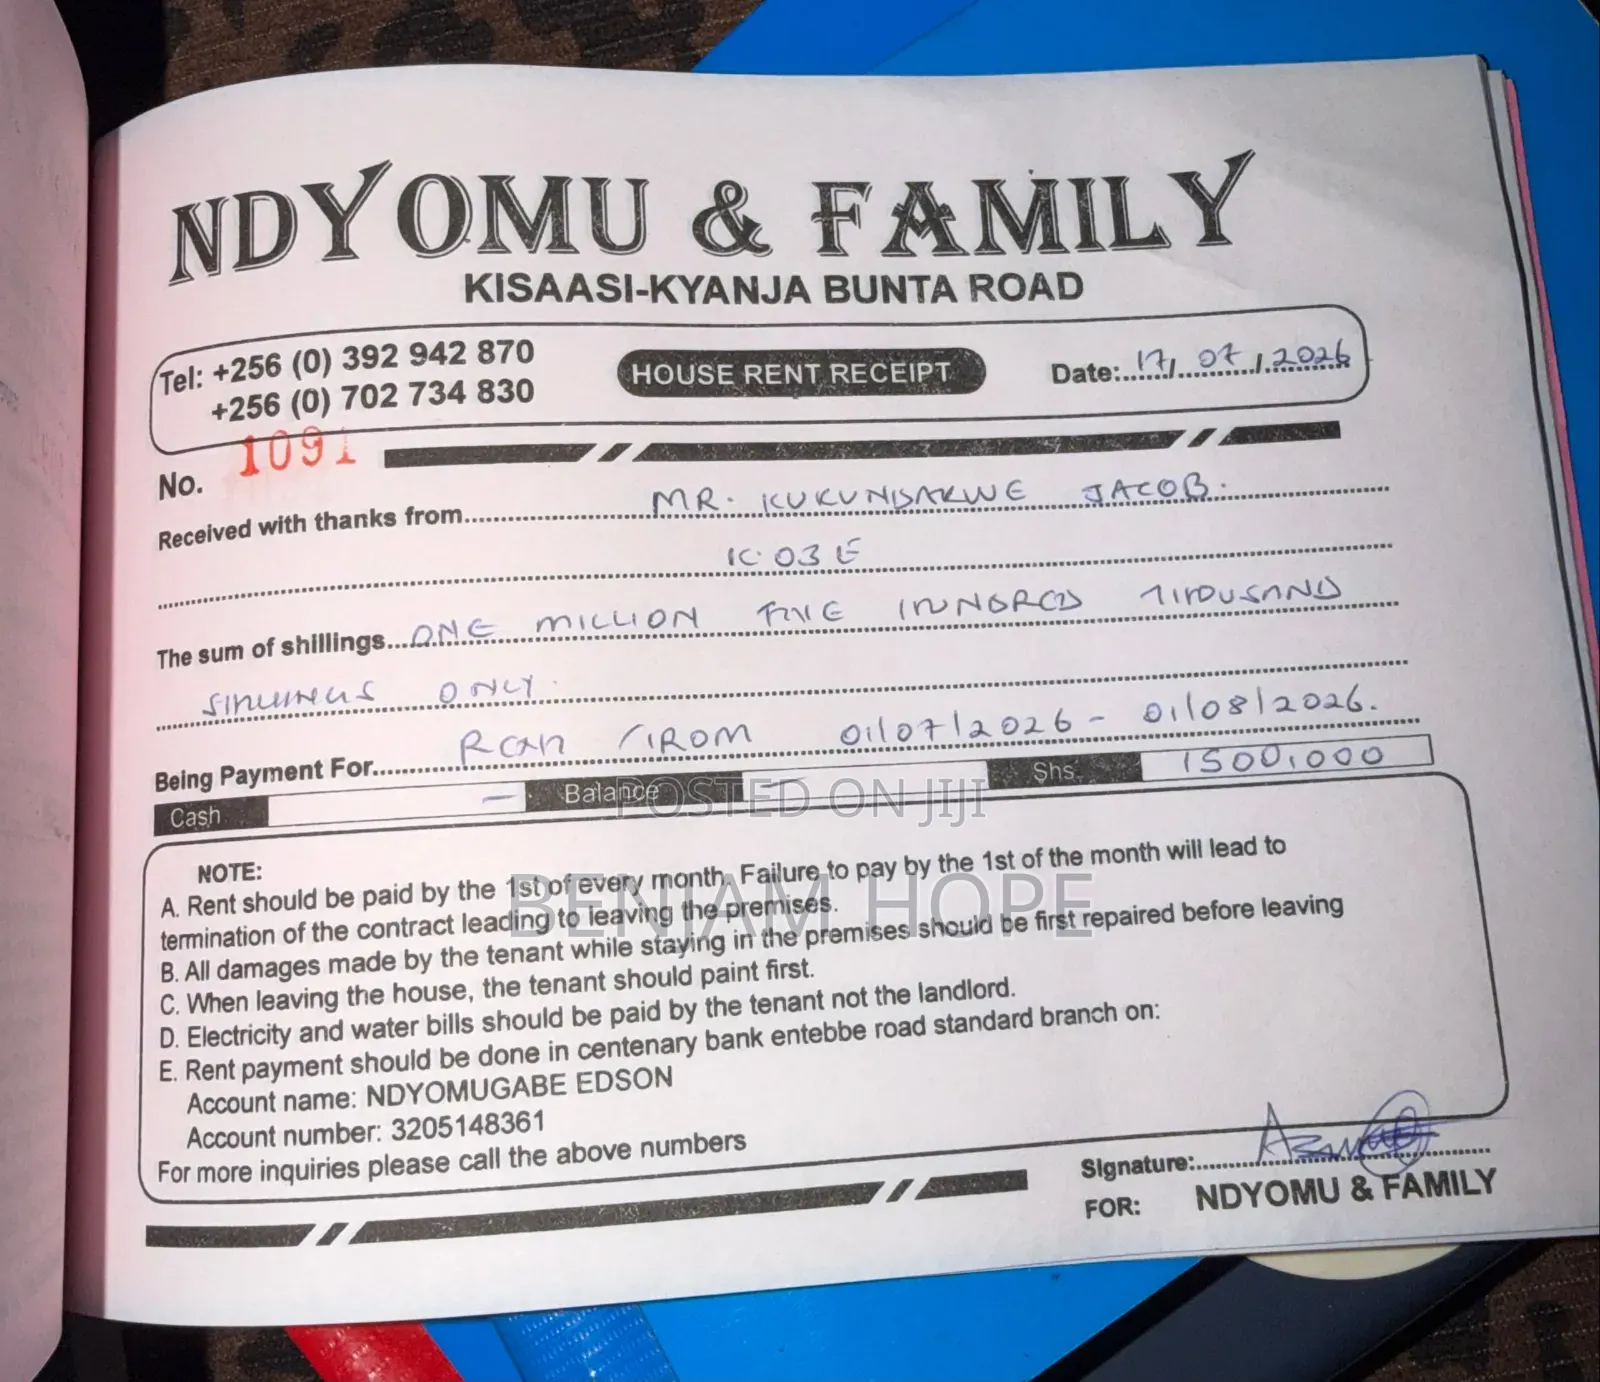 NDYOMU & FAMILY
KISAASI-KYANJA BUNTA ROAD
Tel: +256 (0) 392 942 870
+256 (0) 702 734 830
HOUSE RENT RECEIPT
Date: 17/07/2026
No. 1091
Received with thanks from MR. KUKUNDAKWE JACOB.
K 03 E
The sum of shillings ONE MILLION FIVE HUNDRED THOUSAND
SHILLINGS ONLY.
Being Payment For FROM 01/07/2026 - 01/08/2026.
Cash - Balance Shs 1500,000
POSTED ON JIJI
BENJAM HOPE
NOTE:
A. Rent should be paid by the 1st of every month. Failure to pay by the 1st of the month will lead to
termination of the contract leading to leaving the premises.
B. All damages made by the tenant while staying in the premises should be first repaired before leaving
C. When leaving the house, the tenant should paint first.
D. Electricity and water bills should be paid by the tenant not the landlord.
E. Rent payment should be done in centenary bank entebbe road standard branch on:
Account name: NDYOMUGABE EDSON
Account number: 3205148361
For more inquiries please call the above numbers
Signature:
FOR: NDYOMU & FAMILY